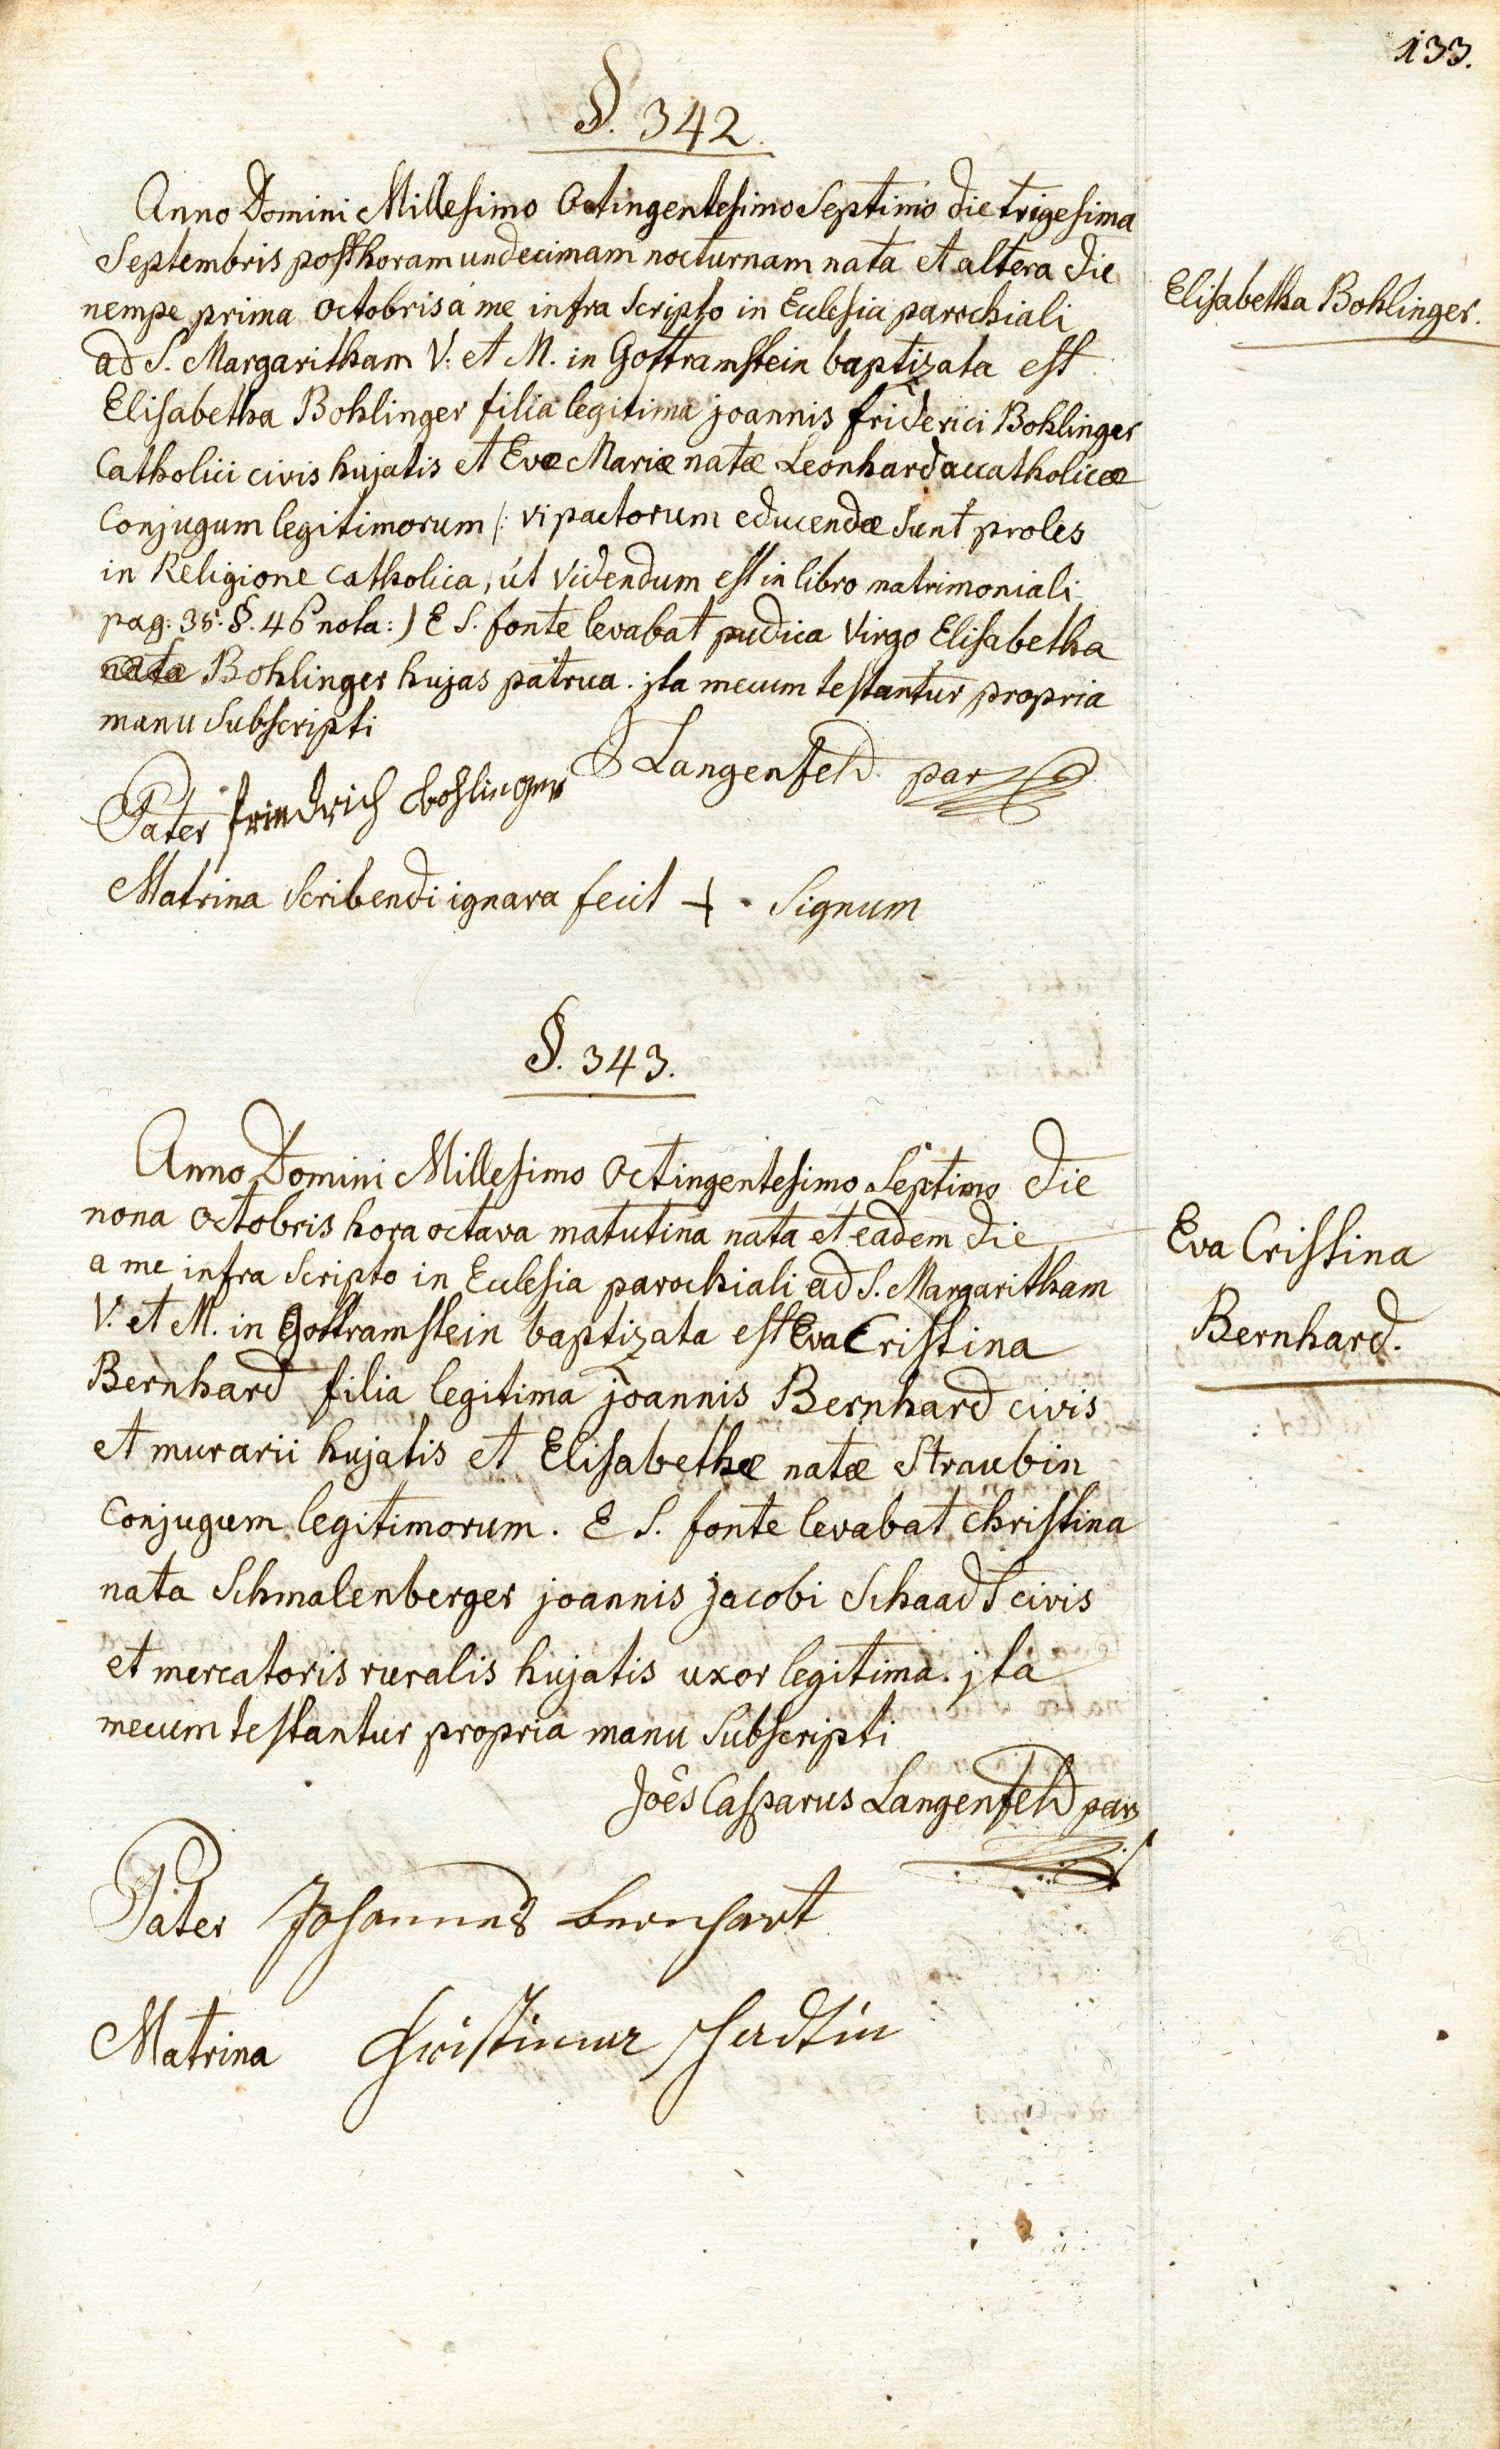 133.
§. 342.
Anno Domini Millesimo Octingentesimo Septimo die trigesima
Septembris post horam undecimam nocturnam nata et altera die
nempe prima Octobris á me infra scripto in Ecclesia parochiali
ad S. Margaritham V. et M. in Gottramstein baptizata est
Elisabetha Bohlinger filia legitima joannis friderici Bohlinger
Catholici civis hujatis et Evæ Mariæ natæ Leonhard accatholicæ
Conjugum legitimorum /: vi pactorum educendæ sunt proles
in Religione Catholica, út videndum est in libro matrimoniali
pag: 35. §. 46 nota: ) E S. fonte levabat pudica virgo Elisabetha
nata Bohlinger hujas patrua. jta mecum testantur propria
manu subscripti
Elisabetha Bohlinger.
Langenfeld par
Pater Friedrich bohlinger
Matrina scribendi ignara fecit + signum
§. 343.
Anno Domini Millesimo Octingentesimo Septimo die
nona Octobris hora octava matutina nata et eadem die
a me infra scripto in Ecclesia parochiali ad S. Margaritham
V. et M. in Gottramstein baptizata est Eva Cristina
Bernhard filia legitima joannis Bernhard civis
et murarii hujatis et Elisabethæ natæ Straubin
Conjugum legitimorum. E S. fonte levabat Christina
nata Schmalenberger joannis jacobi Schaadt civis
et mercatoris ruralis hujatis uxor legitima. jta
mecum testantur propria manu subscripti
Eva Cristina
Bernhard.
Joês Casparus Langenfeld par
Pater Johannes bernhart
Matrina Christina schadtin